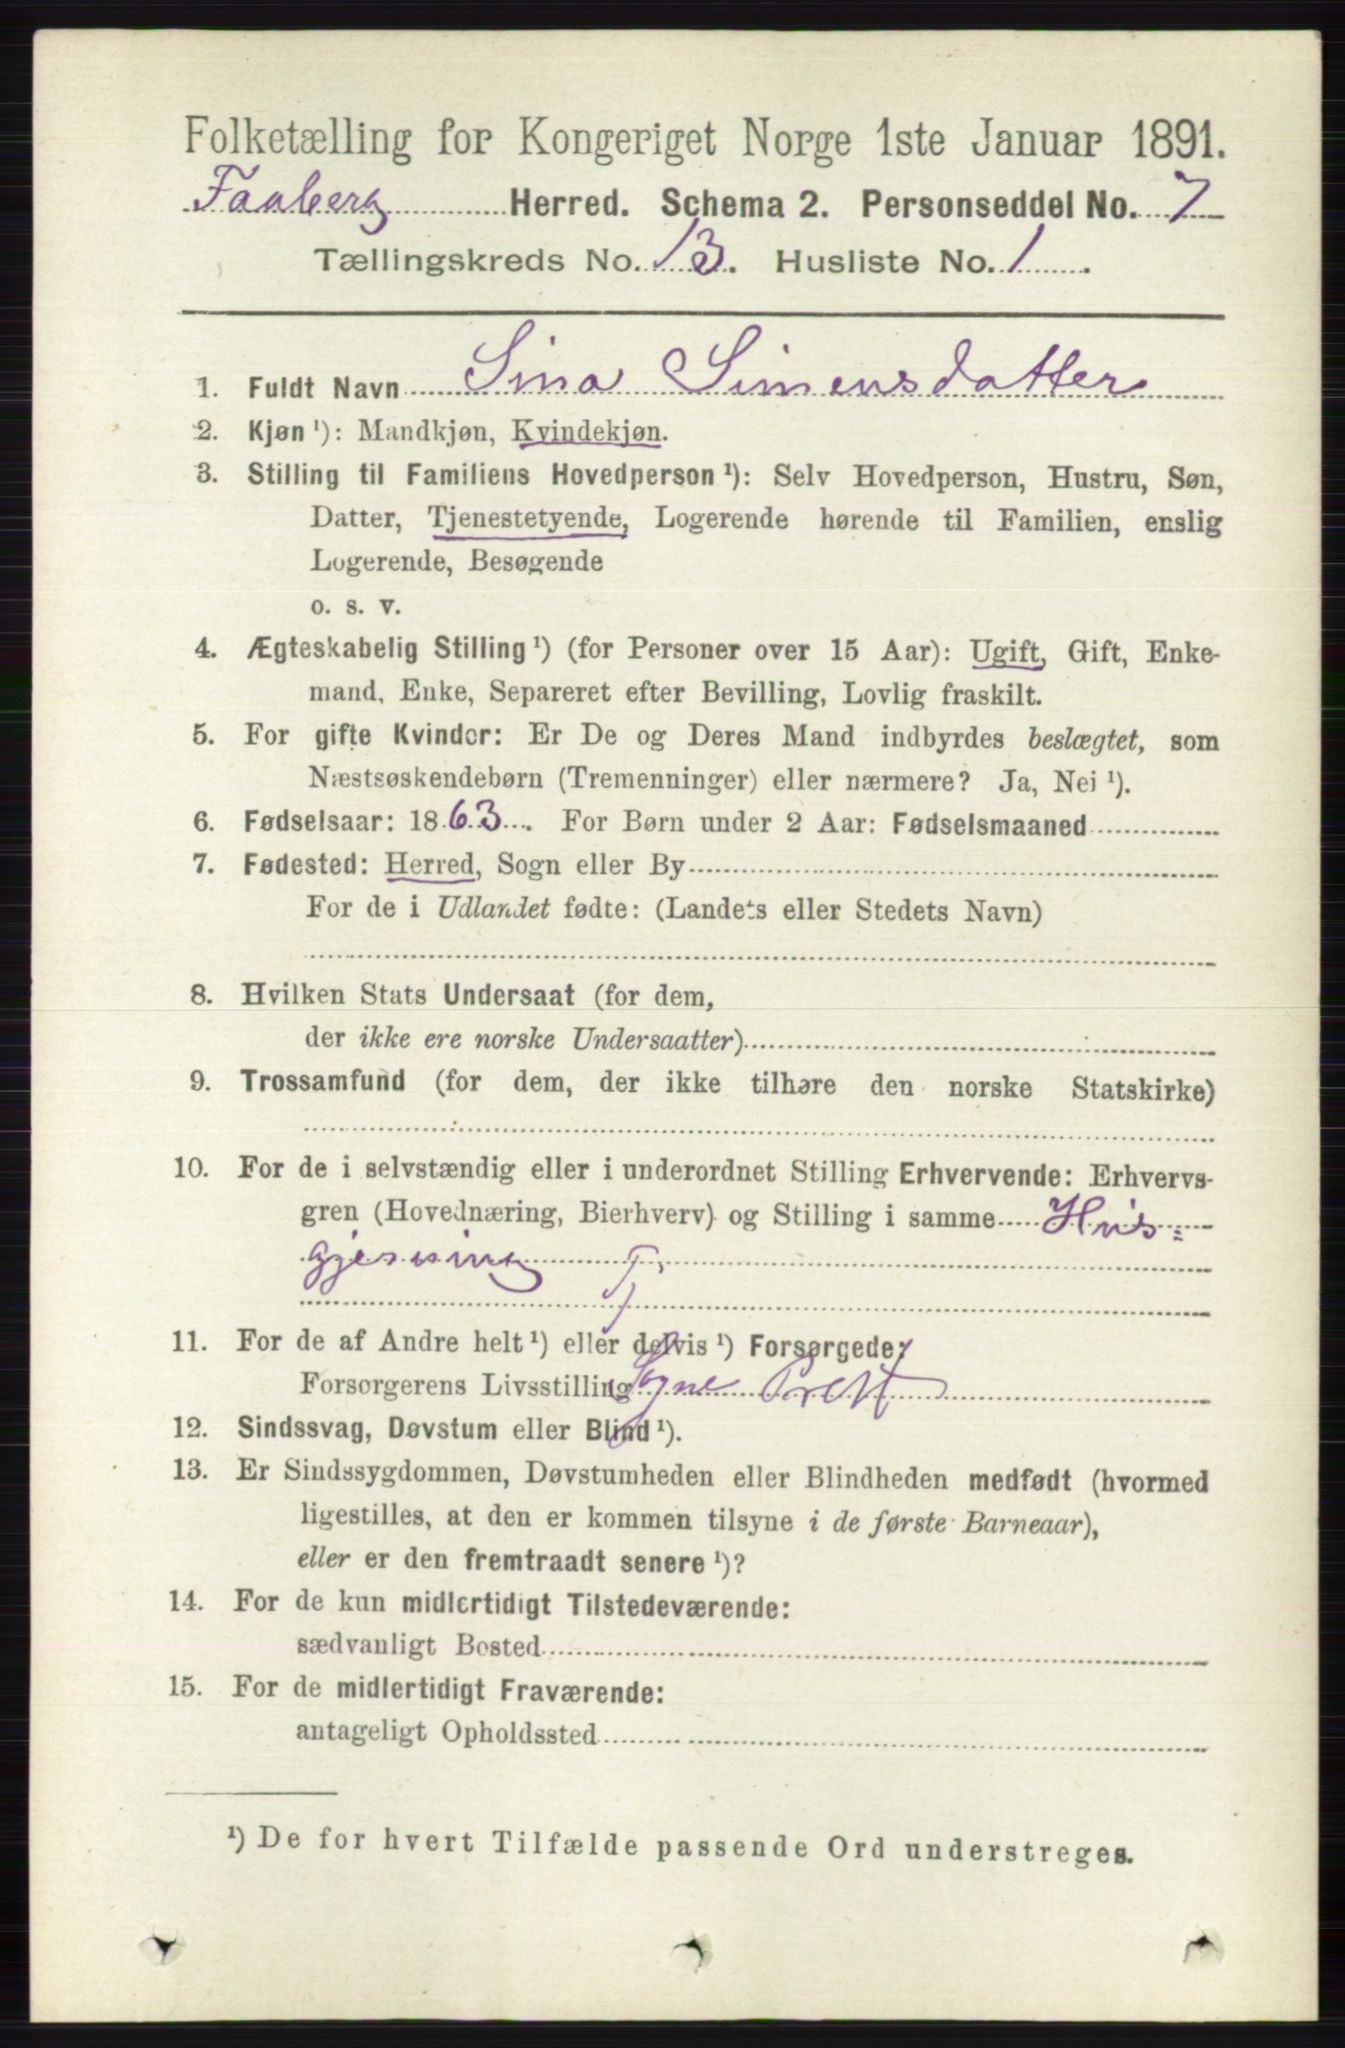 Folketælling for Kongeriget Norge 1ste Januar 1891.
Faaberg Herred. Schema 2. Personseddel No. 7
Tællingskreds No. 13. Husliste No. 1.
1. Fuldt Navn Sina Simensdatter
2. Kjøn ¹): Mandkjøn, Kvindekjøn.
3. Stilling til Familiens Hovedperson ¹): Selv Hovedperson, Hustru, Søn,
Datter, Tjenestetyende, Logerende hørende til Familien, enslig
Logerende, Besøgende
o. s. v.
4. Ægteskabelig Stilling ¹) (for Personer over 15 Aar): Ugift, Gift, Enke-
mand, Enke, Separeret efter Bevilling, Lovlig fraskilt.
5. For gifte Kvinder: Er De og Deres Mand indbyrdes beslægtet, som
Næstsøskendebørn (Tremenninger) eller nærmere? Ja, Nei ¹).
6. Fødselsaar: 1863. For Børn under 2 Aar: Fødselsmaaned
7. Fødested: Herred, Sogn eller By
For de i Udlandet fødte: (Landets eller Stedets Navn)
8. Hvilken Stats Undersaat (for dem,
der ikke ere norske Undersaatter)
9. Trossamfund (for dem, der ikke tilhøre den norske Statskirke)
10. For de i selvstændig eller i underordnet Stilling Erhvervende: Erhvervs-
gren (Hovednæring, Bierhverv) og Stilling i samme Hus=
gjerning T,
11. For de af Andre helt ¹) eller delvis ¹) Forsørgede:
Forsørgerens Livsstilling Sogne Prest
12. Sindssvag, Døvstum eller Blind ¹).
13. Er Sindssygdommen, Døvstumheden eller Blindheden medfødt (hvormed
ligestilles, at den er kommen tilsyne i de første Barneaar),
eller er den fremtraadt senere ¹)?
14. For de kun midlertidigt Tilstedeværende:
sædvanligt Bosted
15. For de midlertidigt Fraværende:
antageligt Opholdssted
¹) De for hvert Tilfælde passende Ord understreges.